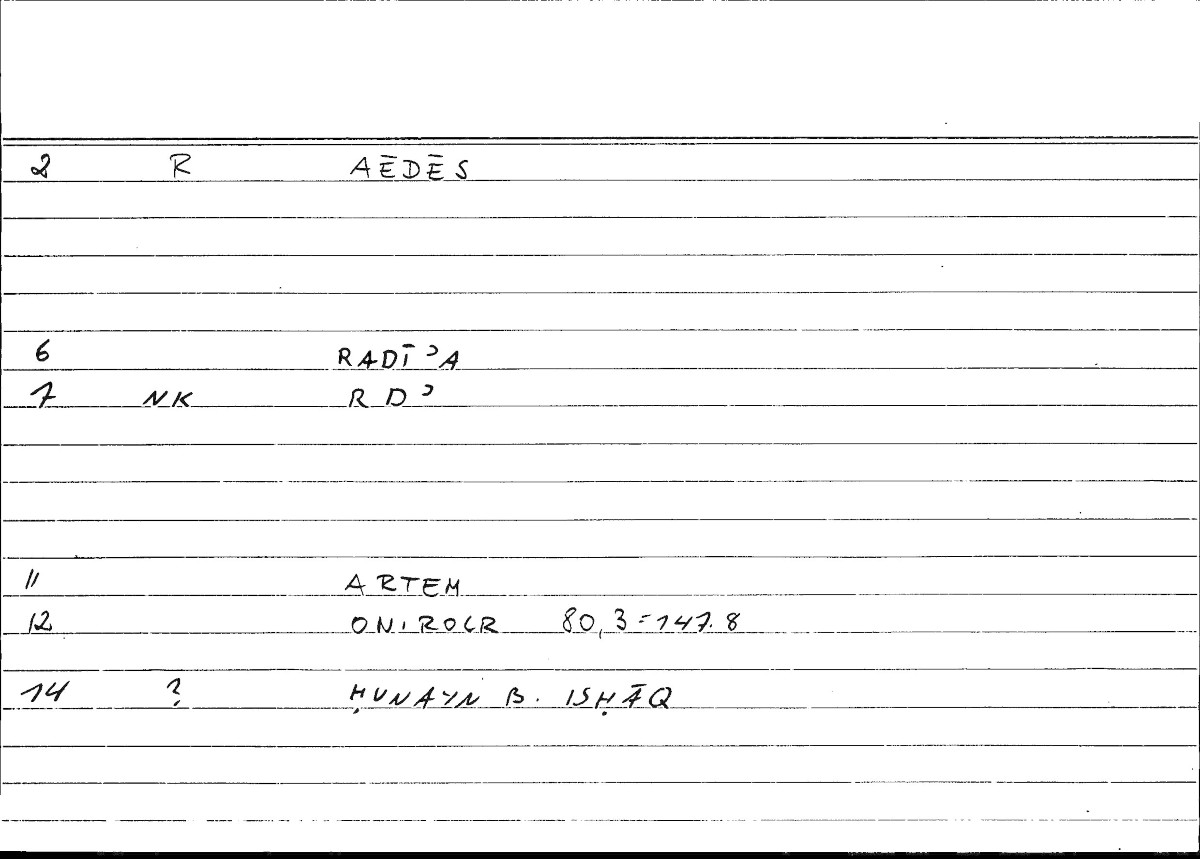 2 R AĒDĒS
6 RADĪʾA
7 NK RDʾ
11 ARTEM
12 ONIROCR 80,3=147.8
14 ? ḤUNAYN B. ISḤĀQ